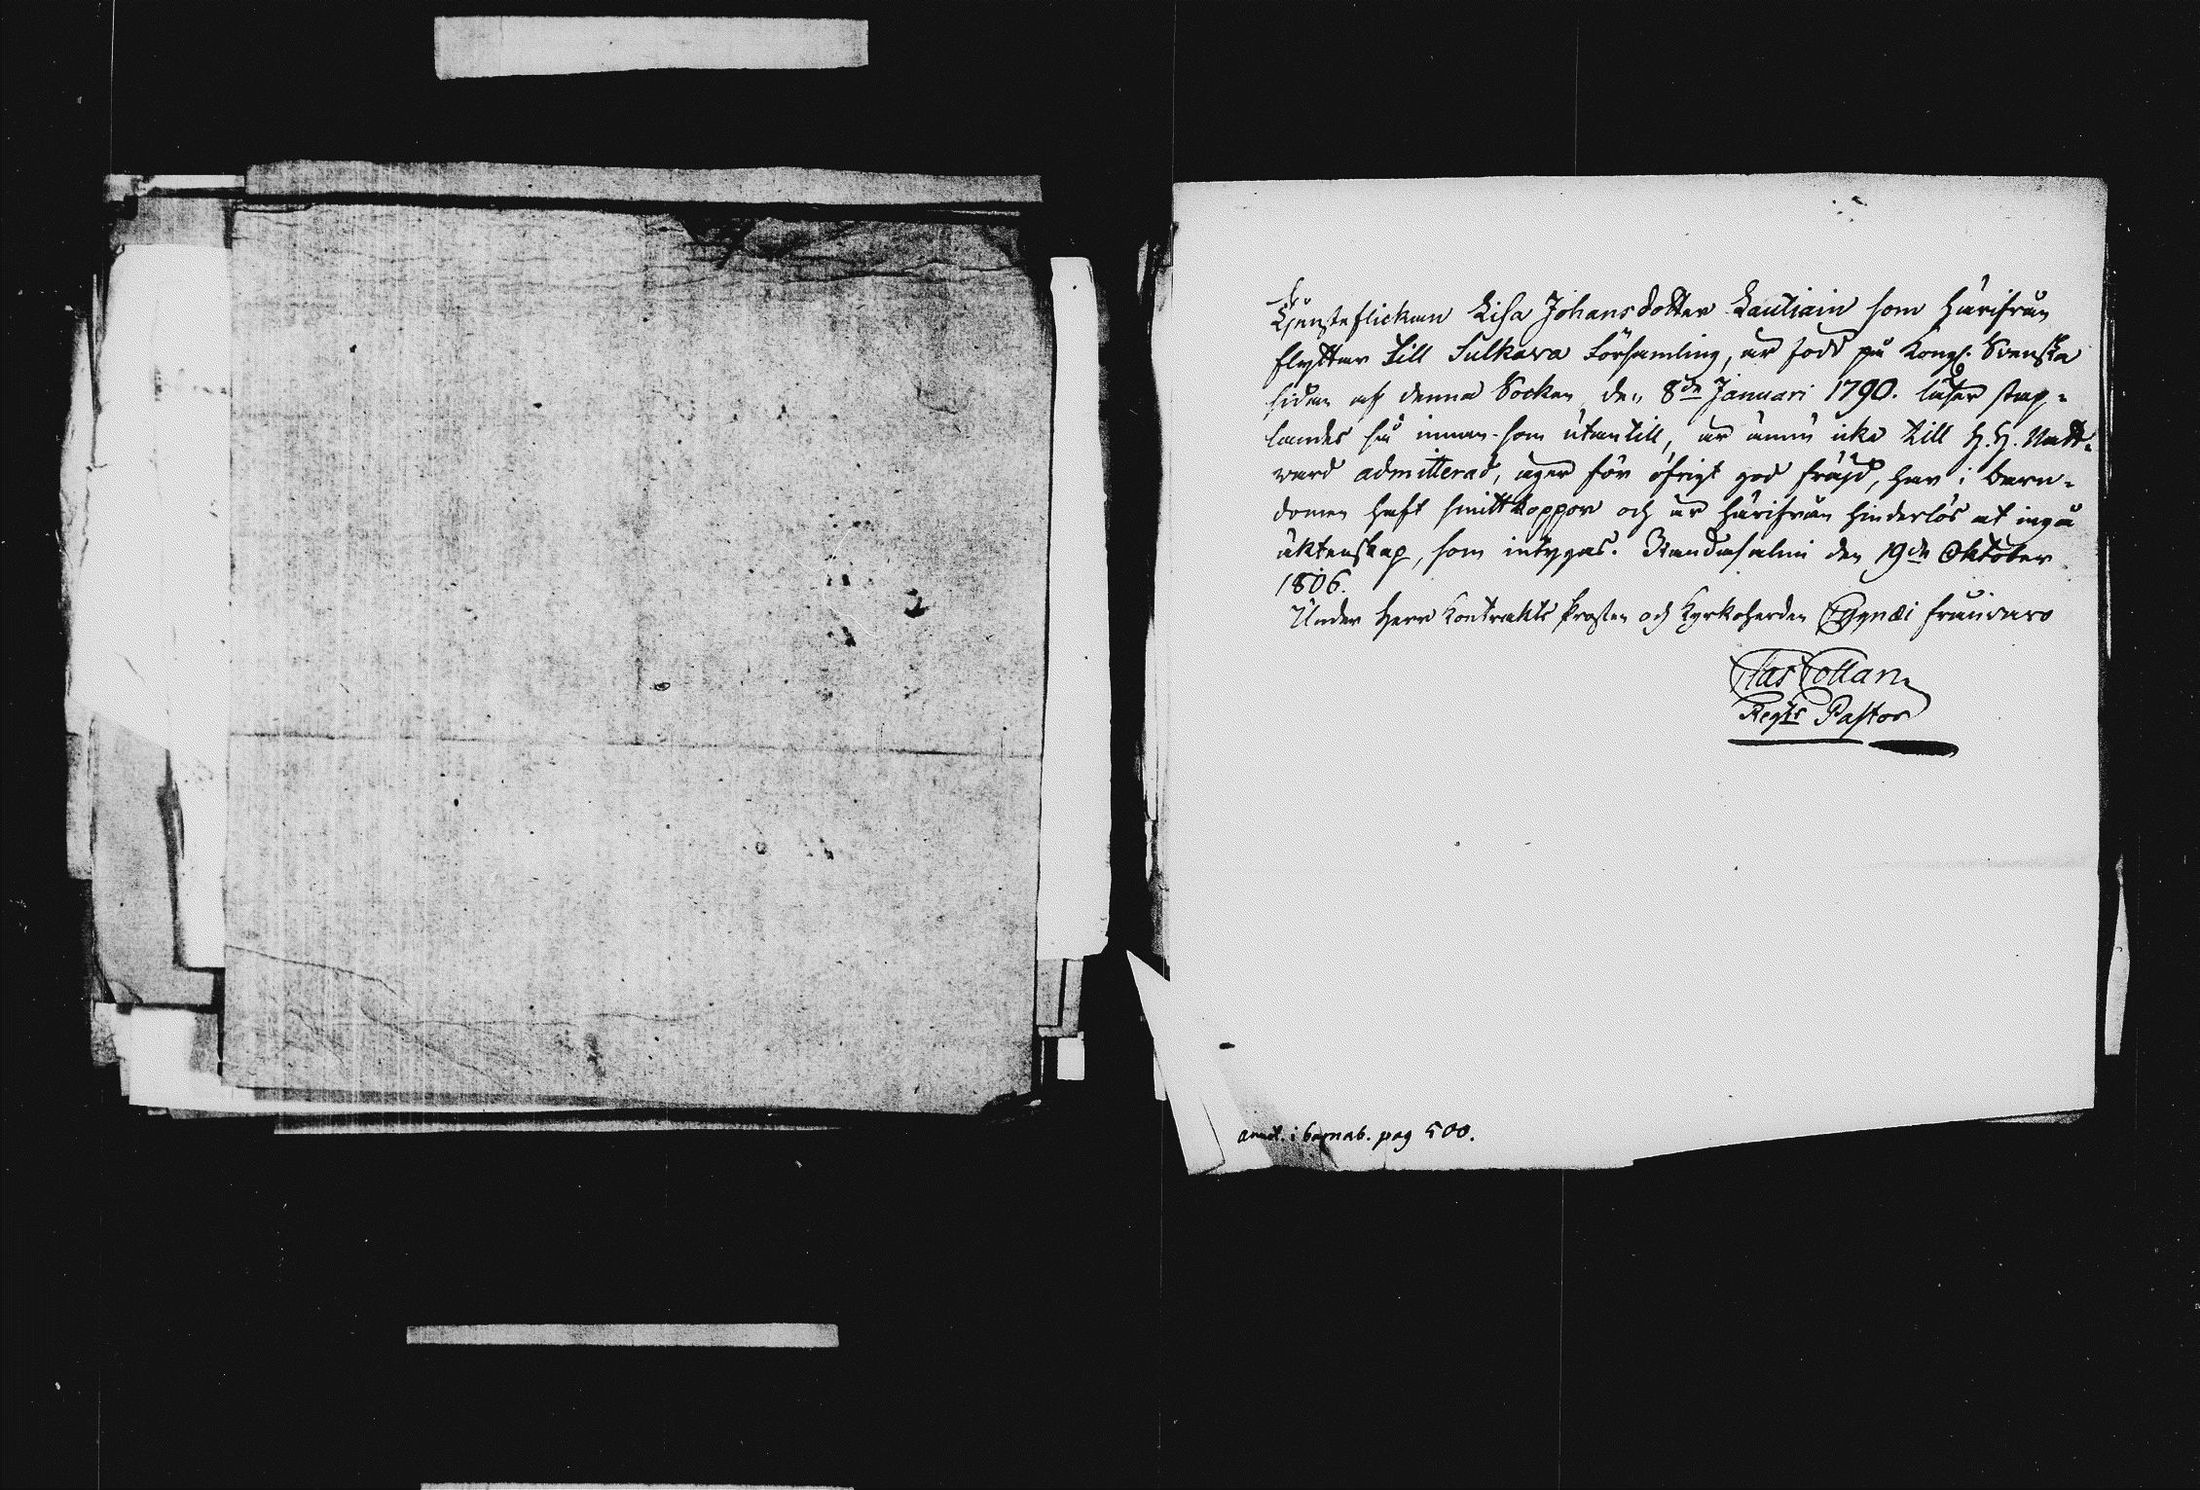 Tjensteflickan Lisa Johansdotter Lautiain som härifrån
flyttar till Sulkava Församling, är född på Kongl. Svenska
sidan af denna Socken den 8de Januari 1790. läser stap-
landes så innan- som utantill, är ännu icke till H. H. Natt-
vard admitterad, äger för öfrigt god fräjd, har i barn-
domen haft smittkoppor och är härifrån hinderlös at ingå
äktenskap, som intygas. Randasalmi den 19de Oktober
1806.
Under Herr Kontrakts Prosten och Kyrkoherden Cygnæi frånvaro
Clas Collan
Regts Pastor
annot. i barnab. pag 500.